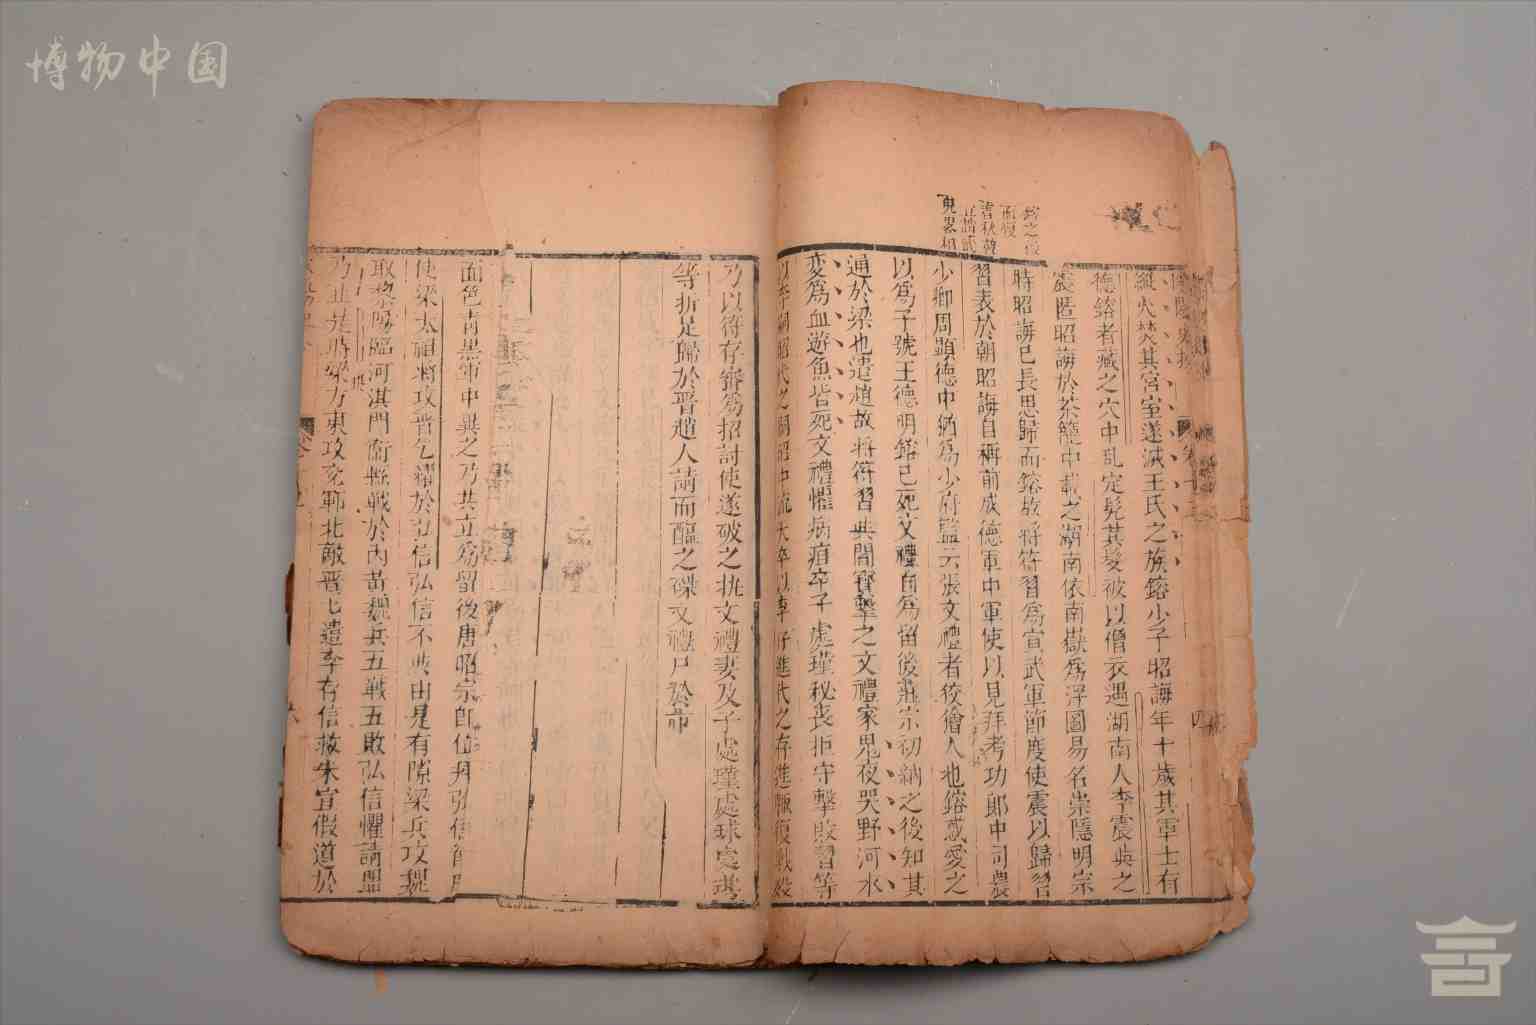 博物中国
縱火焚其宮室遂滅王氏之族鎔少子昭誨年十歲其軍士有
德鎔者藏之穴中亂定髡其髮被以僧衣遇湖南人李震與之
震匿昭誨於茶籠中載之湖南依南嶽為浮圖易名崇隱明宗
時昭誨已長思歸而鎔故將符習為宣武軍節度使震以歸習
習表於朝昭誨自稱前成德軍中軍使以見拜考功郎中司農
少卿周顯德中猶為少府監云張文禮者狡獪人也鎔惑愛之
以為子號王德明鎔已死文禮自為留後莊宗初納之後知其
通於梁也遣趙故將符習與閻寶擊之文禮家鬼夜哭野河水
變為血遊魚皆死文禮懼病疽卒子處瑾秘喪拒守擊敗習等
乃以符存審為招討使遂破之執文禮妻及子處瑾處球處琪
等折足歸於晉趙人請而醢之磔文禮尸於市
面色青黑軍中異之乃共立為留後唐昭宗即位拜
使梁太祖將攻晉乞糴於弘信弘信不與由是有隙梁兵攻魏
取黎陽臨河淇門衛縣戰於內黃魏兵五戰五敗弘信懼請盟
乃止是時梁方東攻兗鄆北敵晉也遣李存信救朱宣假道於